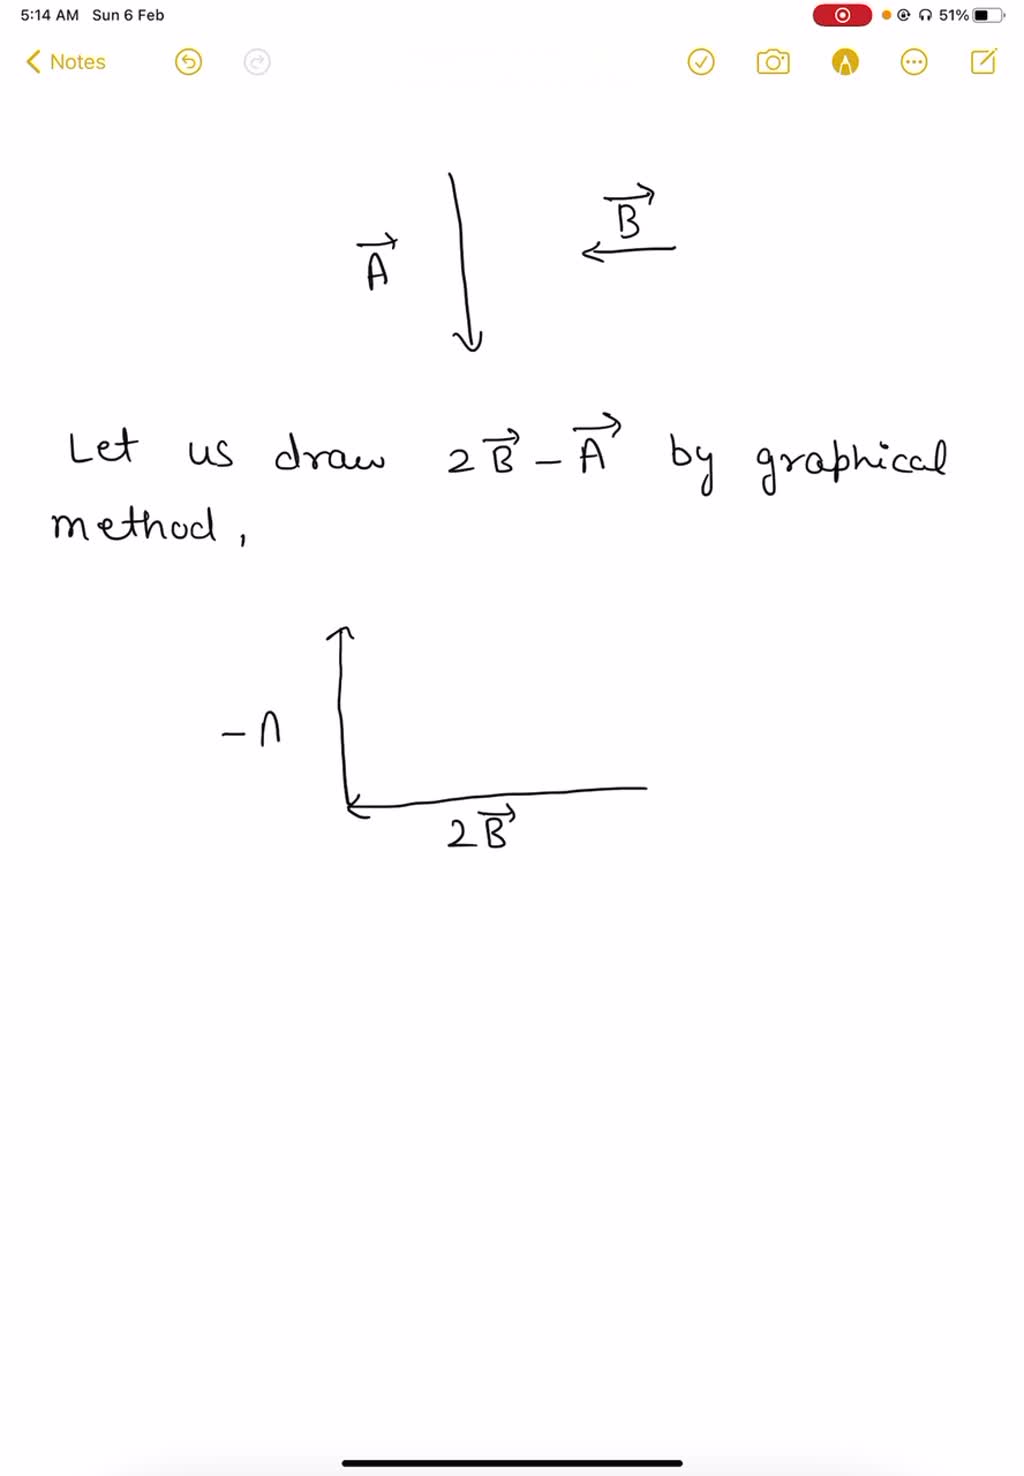 5:14 AM Sun 6 Feb 51%
Notes
B
A
Let us draw 2B - A by graphical
method,
2B